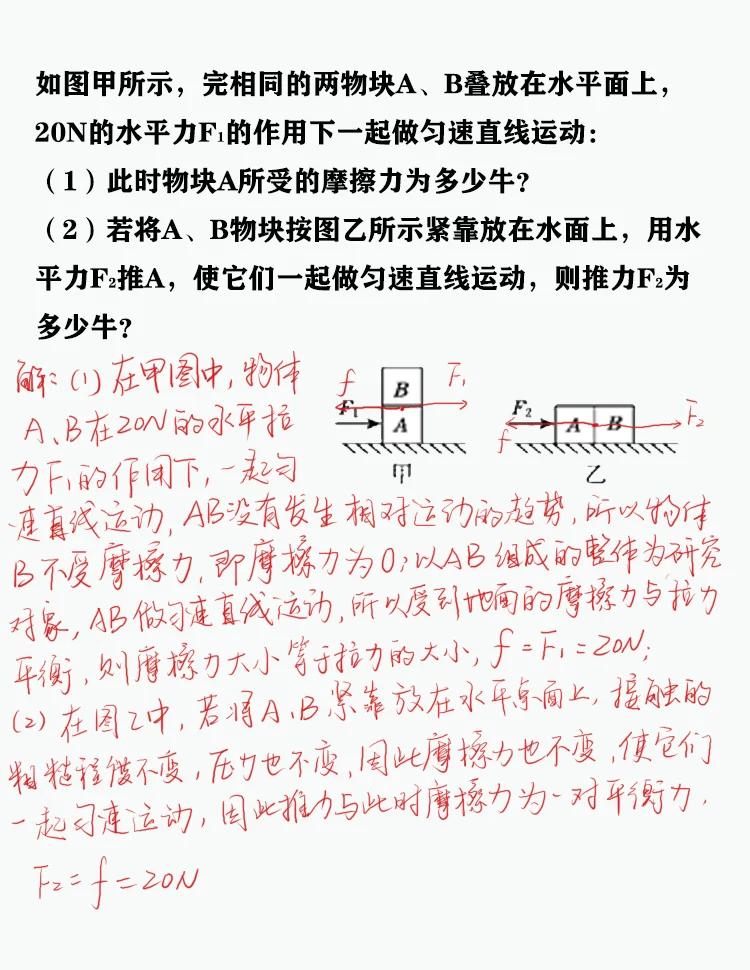 如图甲所示，完相同的两物块A、B叠放在水平面上，
20N的水平力F₁的作用下一起做匀速直线运动：
（1）此时物块A所受的摩擦力为多少牛？
（2）若将A、B物块按图乙所示紧靠放在水面上，用水
平力F₂推A，使它们一起做匀速直线运动，则推力F₂为
多少牛？
解：(1) 在甲图中，物体
A、B在20N的水平拉
力F₁的作用下，一起匀
速直线运动，AB没有发生相对运动的趋势，所以物体
B不受摩擦力，即摩擦力为0；以AB组成的整体为研究
对象，AB做匀速直线运动，所以受到地面的摩擦力与拉力
平衡，则摩擦力大小等于拉力的大小，f=F₁=20N；
(2) 在图乙中，若将A、B紧靠放在水平桌面上，接触的
粗糙程度不变，压力也不变，因此摩擦力也不变，使它们
一起匀速运动，因此推力与此时摩擦力为一对平衡力，
F₂=f=20N
f
B
F₁
F₁
A
甲
F₂
f
A
B
F₂
乙